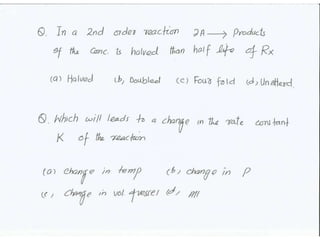 Q. In a 2nd order reaction 2A → Products
of the Conc. is halved than half life of Rx
(a) Halved (b) Doubled (c) Four fold (d) Unalterd
Q. Which will leads to a change in the rate constant
K of the reaction
(a) change in temp (b) change in P
(c) change in vol of vessel (d)